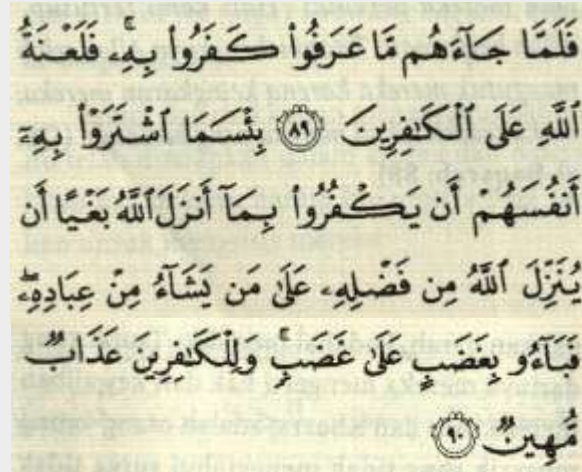 فَلَمَّا جَآءَهُم مَّا عَرَفُوا۟ كَفَرُوا۟ بِهِۦۚ فَلَعْنَةُ
ٱللَّهِ عَلَى ٱلْكَـٰفِرِينَ ٨٩ بِئْسَمَا ٱشْتَرَوْا۟ بِهِۦٓ
أَنفُسَهُمْ أَن يَكْفُرُوا۟ بِمَآ أَنزَلَ ٱللَّهُ بَغْيًا أَن
يُنَزِّلَ ٱللَّهُ مِن فَضْلِهِۦ عَلَىٰ مَن يَشَآءُ مِنْ عِبَادِهِۦۖ
فَبَآءُو بِغَضَبٍ عَلَىٰ غَضَبٍۚ وَلِلْكَـٰفِرِينَ عَذَابٌ
مُّهِينٌ ٩٠